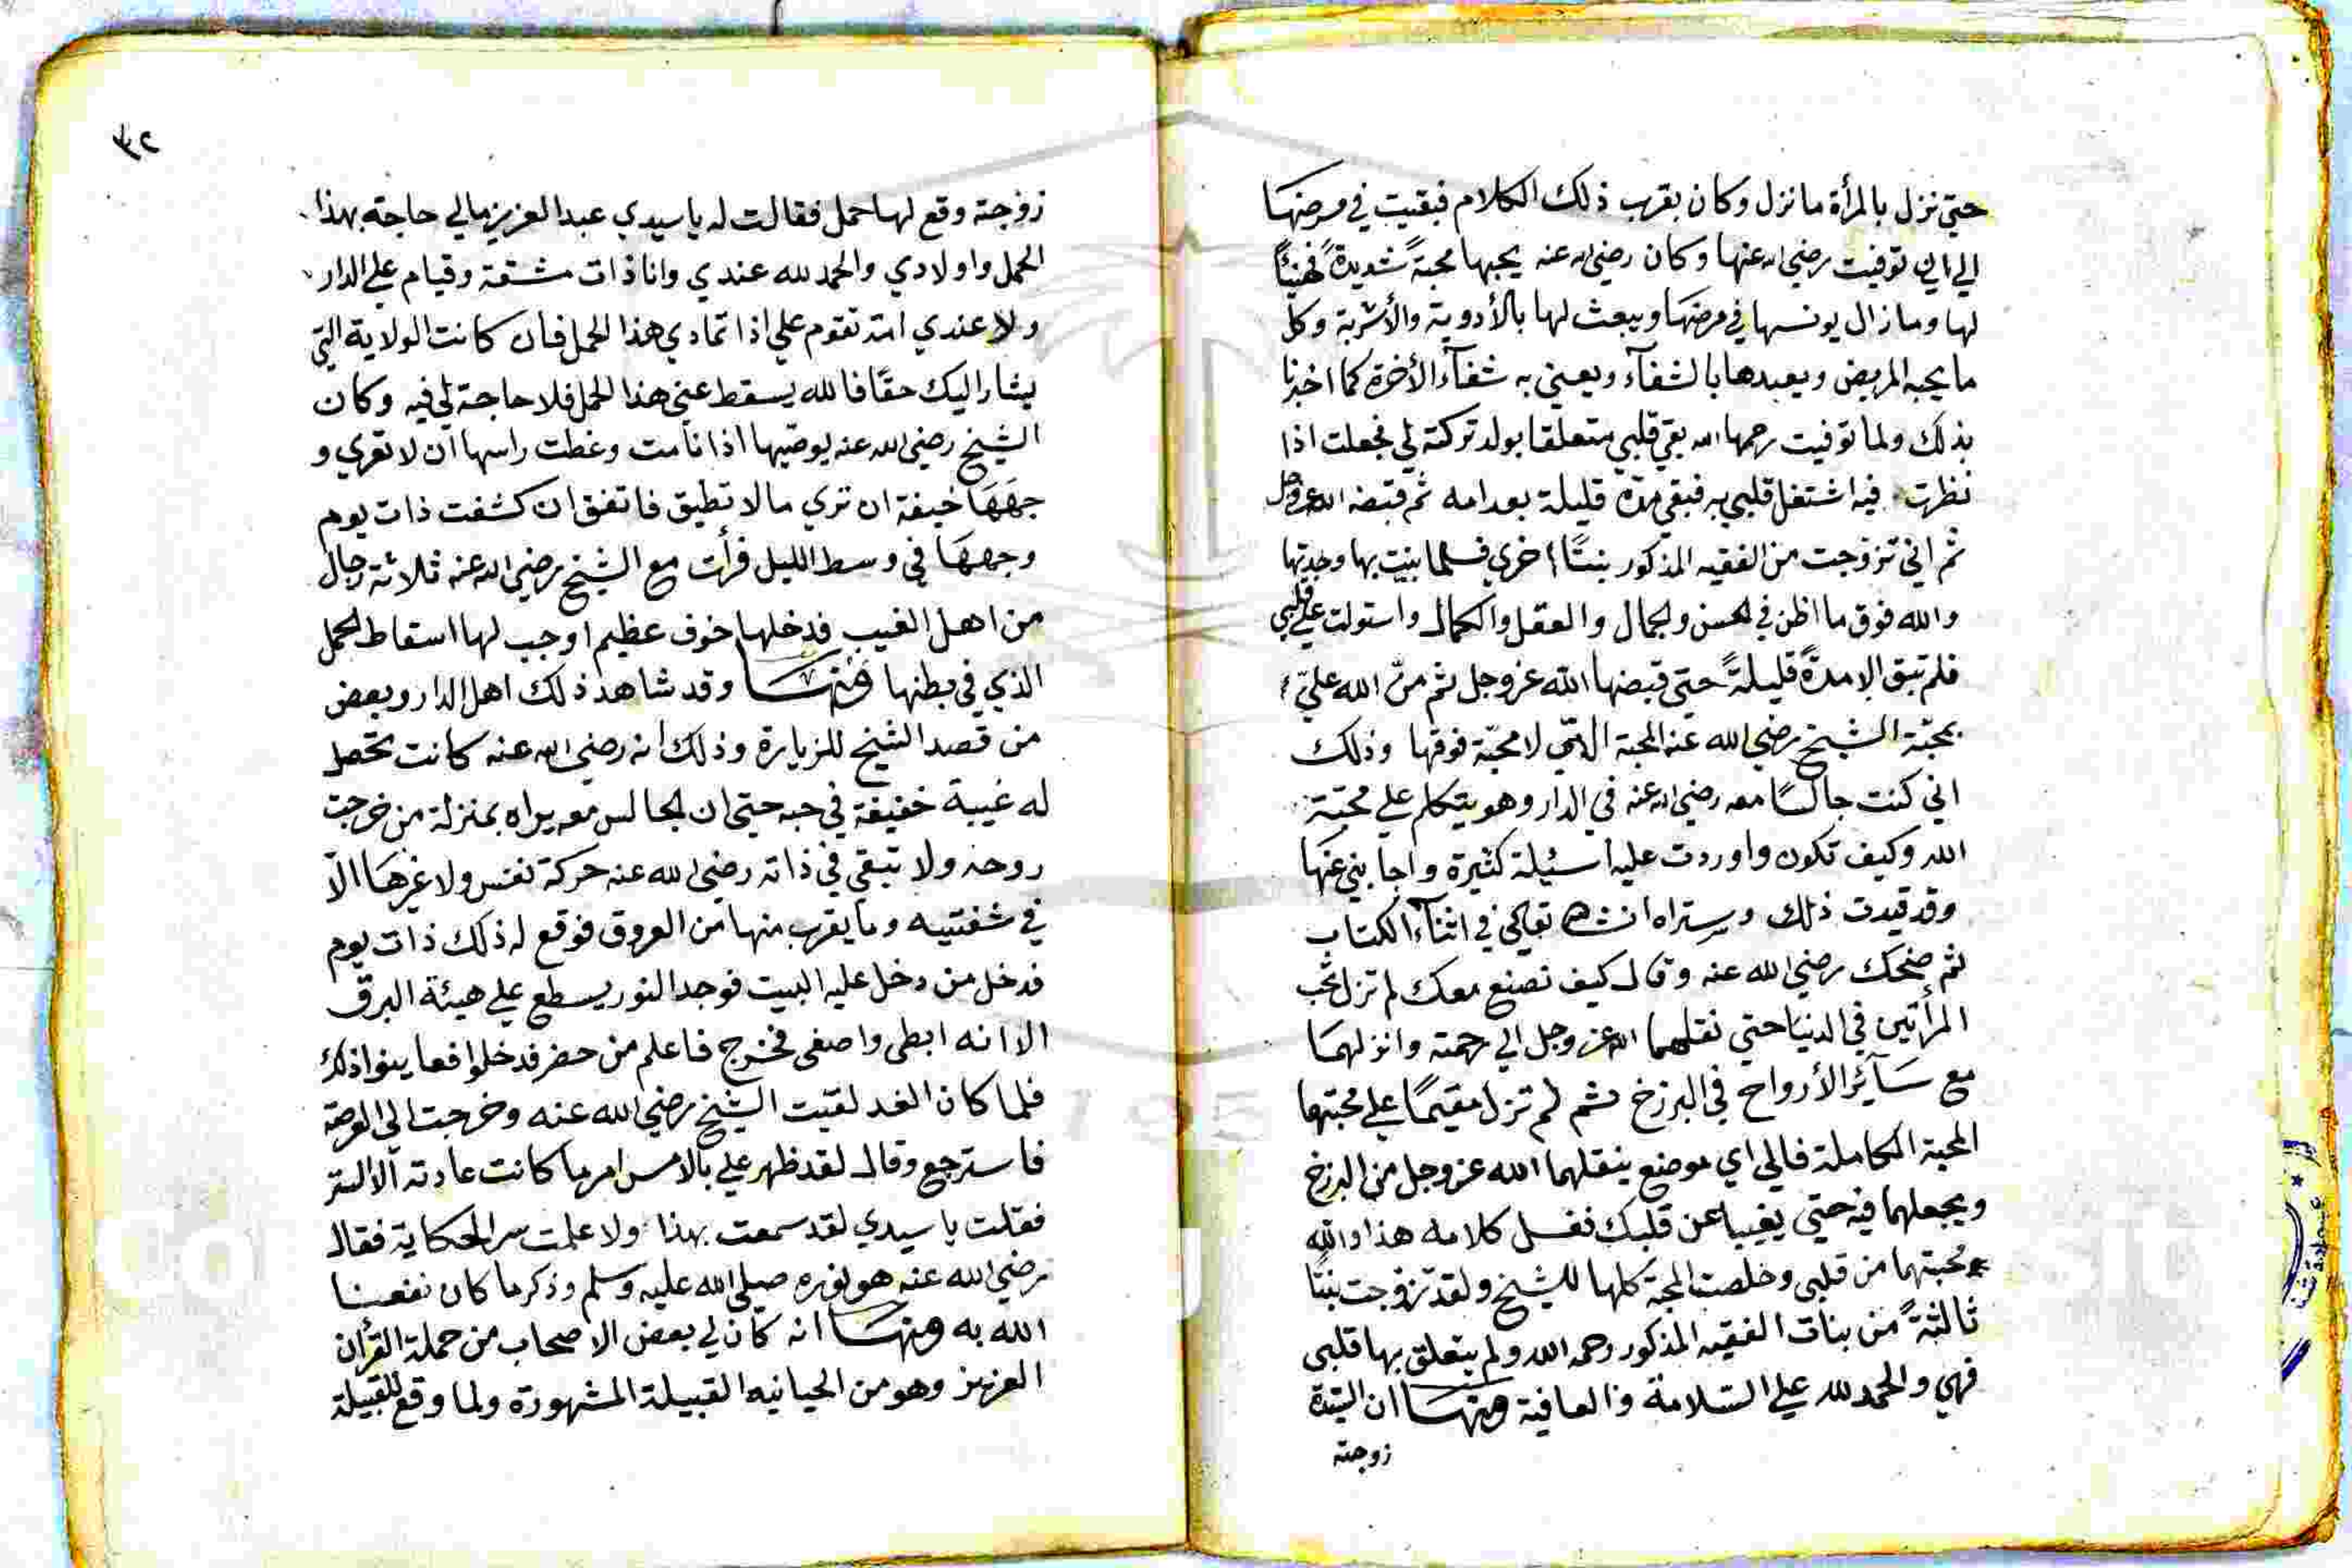 حتي نزل بالمرأة ما نزل وكان بقرب ذلك الكلام فبقيت في مرضها
الي ان توفيت رضي الله عنها وكان رضي الله عنه يحبها محبةً شديدةً فهنيًا
لها وما زال يونسها في مرضها ويبعث لها بالأدوية والأشربة وكل
ما يحبه المريض ويعبدها بالشفآء ويعني به شفآء الأخرة كما اخبرنا
بذلك ولما توفيت رحمها الله بقي قلبي متعلقا بولد تركته لي فجعلت اذا
نظرت فيه اشتغل قلبي به فبقي مدة قليلة بعد امه ثم قبضه الله عزوجل
ثم اني تزوجت من الفقيه المذكور بنتًا اخري فلما بنيت بها وجدتها
والله فوق ما اظن في الحسن والجمال والعقل والكمال واستولت علي قلبي
فلم تبق الا مدةً قليلةً حتي قبضها الله عزوجل ثم منّ الله عليّ
بمحبّة الشيخ رضي الله عنه المحبة التي لا محبّة فوقها وذلك
اني كنت جالسًا معه رضي الله عنه في الدار وهو يتكلم علي محبّة
الله وكيف تكون واوردت عليه اسئيلة كثيرة واجابني عنها
وقد قيدت ذلك وستراه انشاه تعالي في اثنآء الكتاب
ثم ضحك رضي الله عنه وقال كيف نصنع معك لم تزل تحب
المرأتين في الدنيا حتي نقلهما الله عز وجل الي رحمته وانزلهما
مع سآئر الأرواح في البرزخ ثم لم تزل مقيمًا علي محبتهما
المحبة الكاملة فالي اي موضع ينقلهما الله عزوجل من البرزخ
ويجعلهما فيه حتي يغيبا عن قلبك فغسل كلامه هذا والله
محبتهما من قلبي وخلصت المحبة كلها للشيخ ولقد تزوجت بنتًا
ثالثةً من بنات الفقيه المذكور رحمه الله ولم يتعلق بها قلبي
فهي والحمد لله علي السّلامة والعافية ومنها ان السّيّدة
زوجته
٣٢
زوجته وقع لها حمل فقالت له يا سيدي عبد العزيز مالي حاجة بهذا
الحمل واولادي والحمد لله عندي وانا ذات مشقة وقيام علي الدار
ولا عندي امة تقوم علي اذا تمادي هذا الحمل فان كانت الولاية التي
يشار اليك حقًا فالله يسقط عني هذا الحمل فلا حاجة لي فيه وكان
الشيخ رضي الله عنه يوصّيها اذا نامت وغطت راسها ان لا تعري و
جهها خيفة ان تري ما لا تطيق فاتفق ان كشفت ذات يوم
وجهها في وسط الليل فرأت مع الشيخ رضي الله عنه ثلاثة رجال
من اهل الغيب فدخلها خوف عظيم اوجب لها اسقاط الحمل
الذي في بطنها ومنها وقد شاهد ذلك اهل الدار وبعض
من قصد الشيخ للزيارة وذلك انه رضي الله عنه كانت تحصل
له غيبة خفيفة في حبه حتي ان الجالس معه يراه بمنزلة من خرجت
روحه ولا تبقي في ذاته رضي الله عنه حركة نفس ولا غيرها الّا
في شفتيه وما يقرب منها من العروق فوقع له ذلك ذات يوم
فدخل من دخل عليه البيت فوجد النور يسطع علي هيئة البرق
الا انه ابطى واصفى فخرج فاعلم من حضر فدخلوا فعاينوا ذلك
فلما كان الغد لقيت الشيخ رضي الله عنه وخرجت الي العرصة
فاسترجع وقال لقد ظهر علي بالامس امر ما كانت عادته الا الستر
فقلت يا سيدي لقد سمعت بهذا ولا علمت سر الحكاية فقال
رضي الله عنه هو نوره صلي الله عليه وسلم وذكر ما كان نفعنا
الله به ومنها انه كان لي بعض الاصحاب من حملة القرأن
العزيز وهو من الحيانيه القبيلة المشهورة ولما وقع للقبيلة